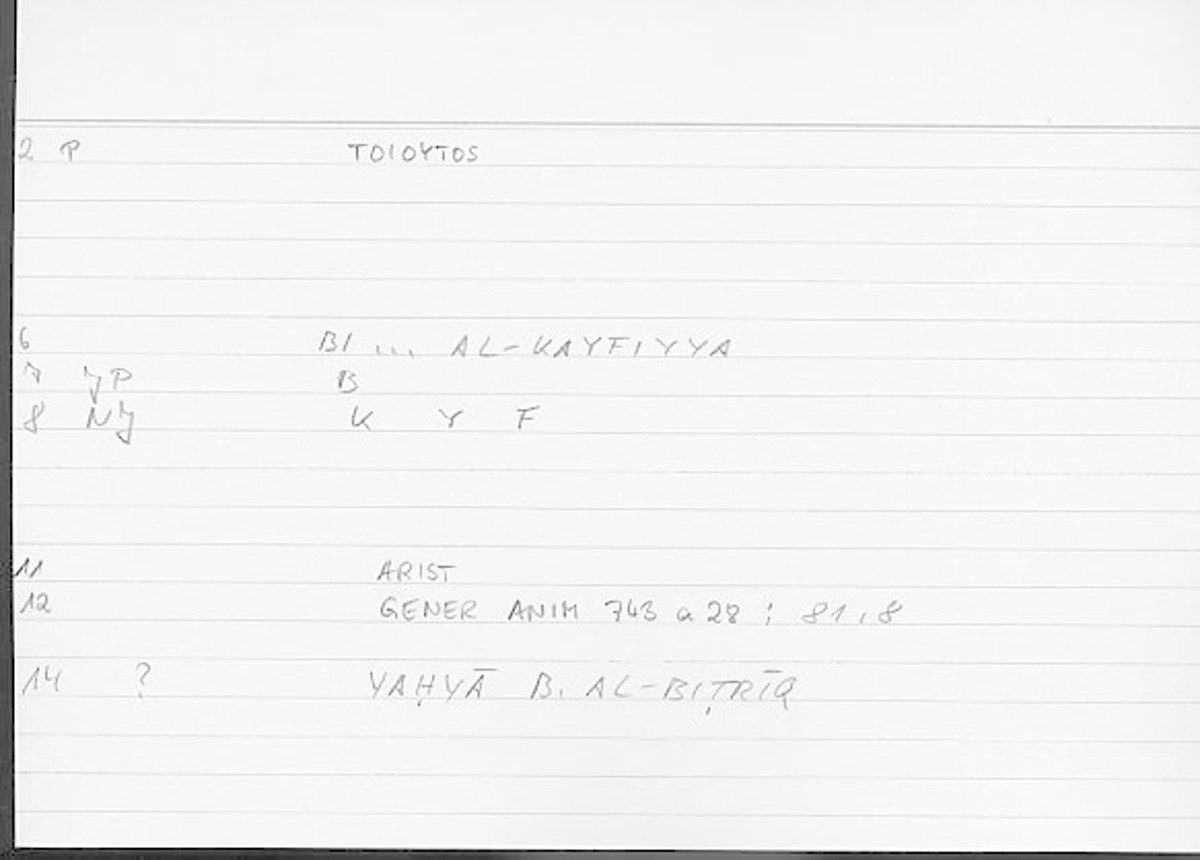 2 P TOIOYTOS
6 BI ... AL-KAYFIYYA
7 JP B
8 NJ K Y F
11 ARIST
12 GENER ANIM 743 a 28 ; 81,8
14 ? YAḤYĀ B. AL-BIṬRĪQ